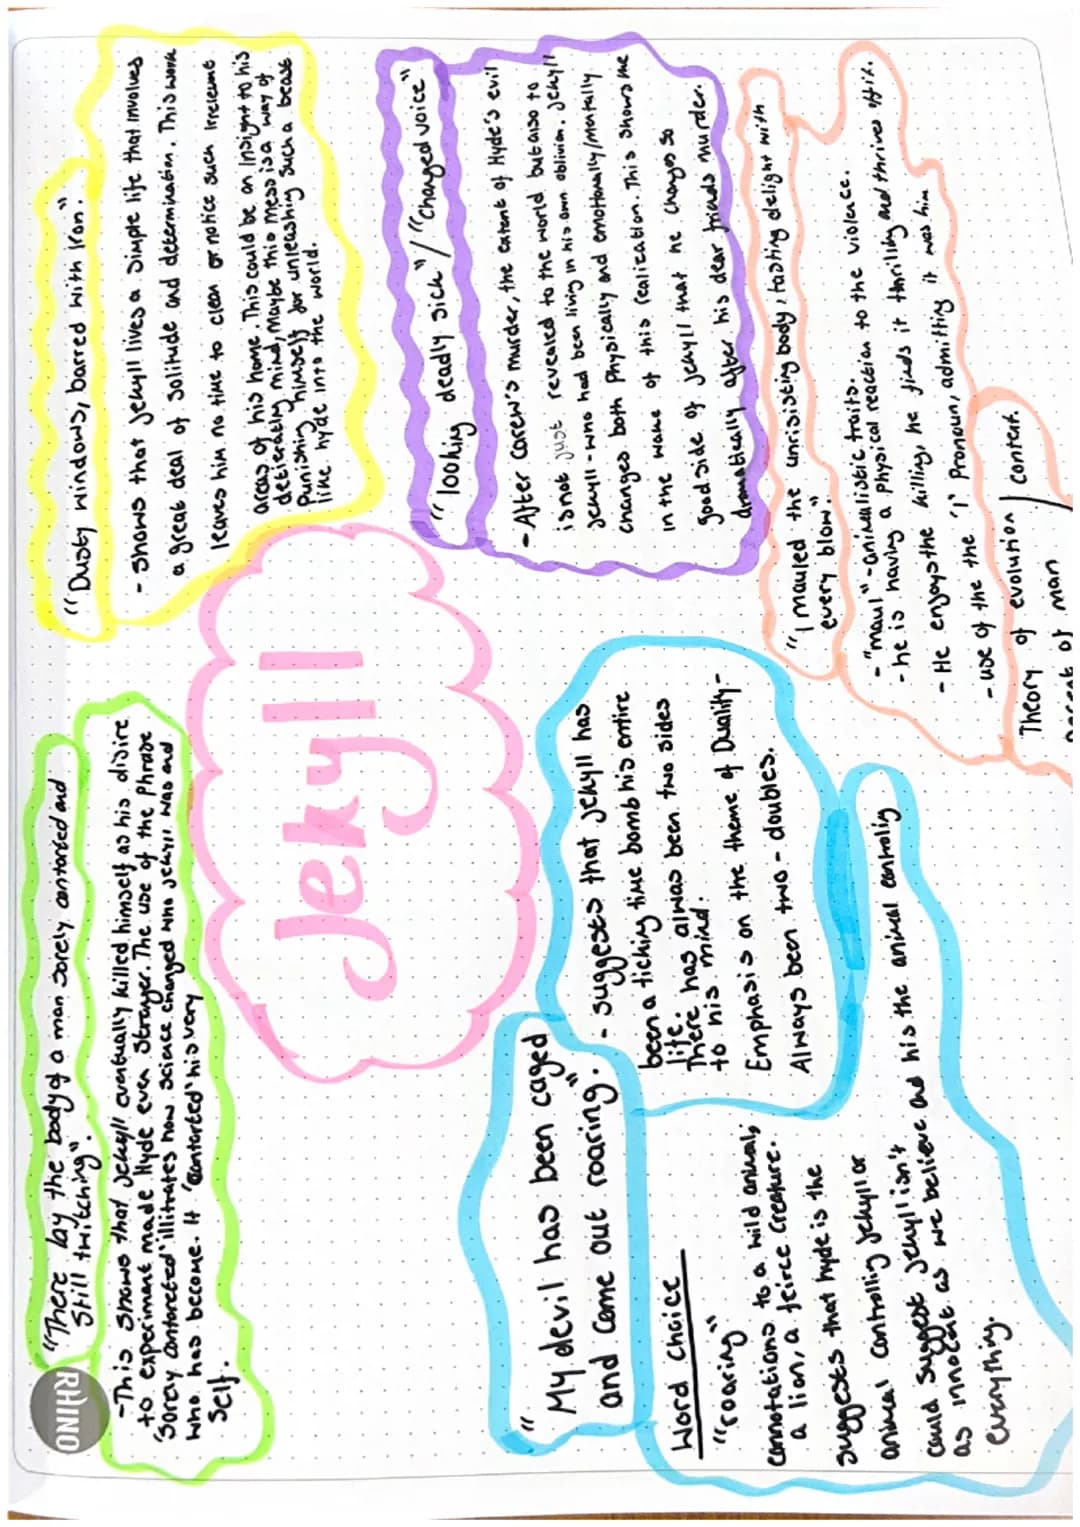 RHINO
"There lay the body of a man sorely contorted and
still twitching".
- This shows that Jekyll eventually killed himself as his disire
to experiment made Hyde even stronger. The use of the phrase
'sorely contorted' illitrates how science changed who Jekyll was and
who he has become. It 'contorted' his very
self.
"Dusty windows, barred with Iron."
- Shows that Jekyll lives a simple life that involves
a great deal of solitude and determination. This work
leaves him no time to clean or notice such irrelevent
areas of his home. This could be an insight to his
mind, Maybe this mess is a way of
Punishing himself for unleashing such a beast
like hyde into the world.
Jekyll
"looking deadly sick" / "Changed voice"
- After Carew's murder, the extent of Hyde's evil
is not just revealed to the world but also to
Jekyll - who had been living in his own oblivion. Jekyll
changes both Physically and emotionally/mentally
in the wake of this realication. This shows the
good side of Jekyll that he changes so
dramatically after his dear friends murder.
"My devil has been caged
and come out roaring".
- suggests that Jekyll has
been a ticking time bomb his entire
life.
There has always been two sides
to his mind.
Emphasis on the theme of Duality -
Always been two - doubles.
Word choice
"roaring"
connotations to a wild animal,
a lion, a feirce creature.
suggests that hyde is the
animal controlling Jekyll or
could suggest Jekyll isn't
as innocent as we believe and his is the animal controlig
everything.
"I mauled the unrisisting body, tasting delight with
every blow."
- "maul" - animalistic traits.
- he is having a Physical reaction to the violence.
- He enjoys the killing, he finds it thrilling and thrives off it.
- use of the the 'I' Pronoun, admitting it was him
Theory of evolution / context.
of man